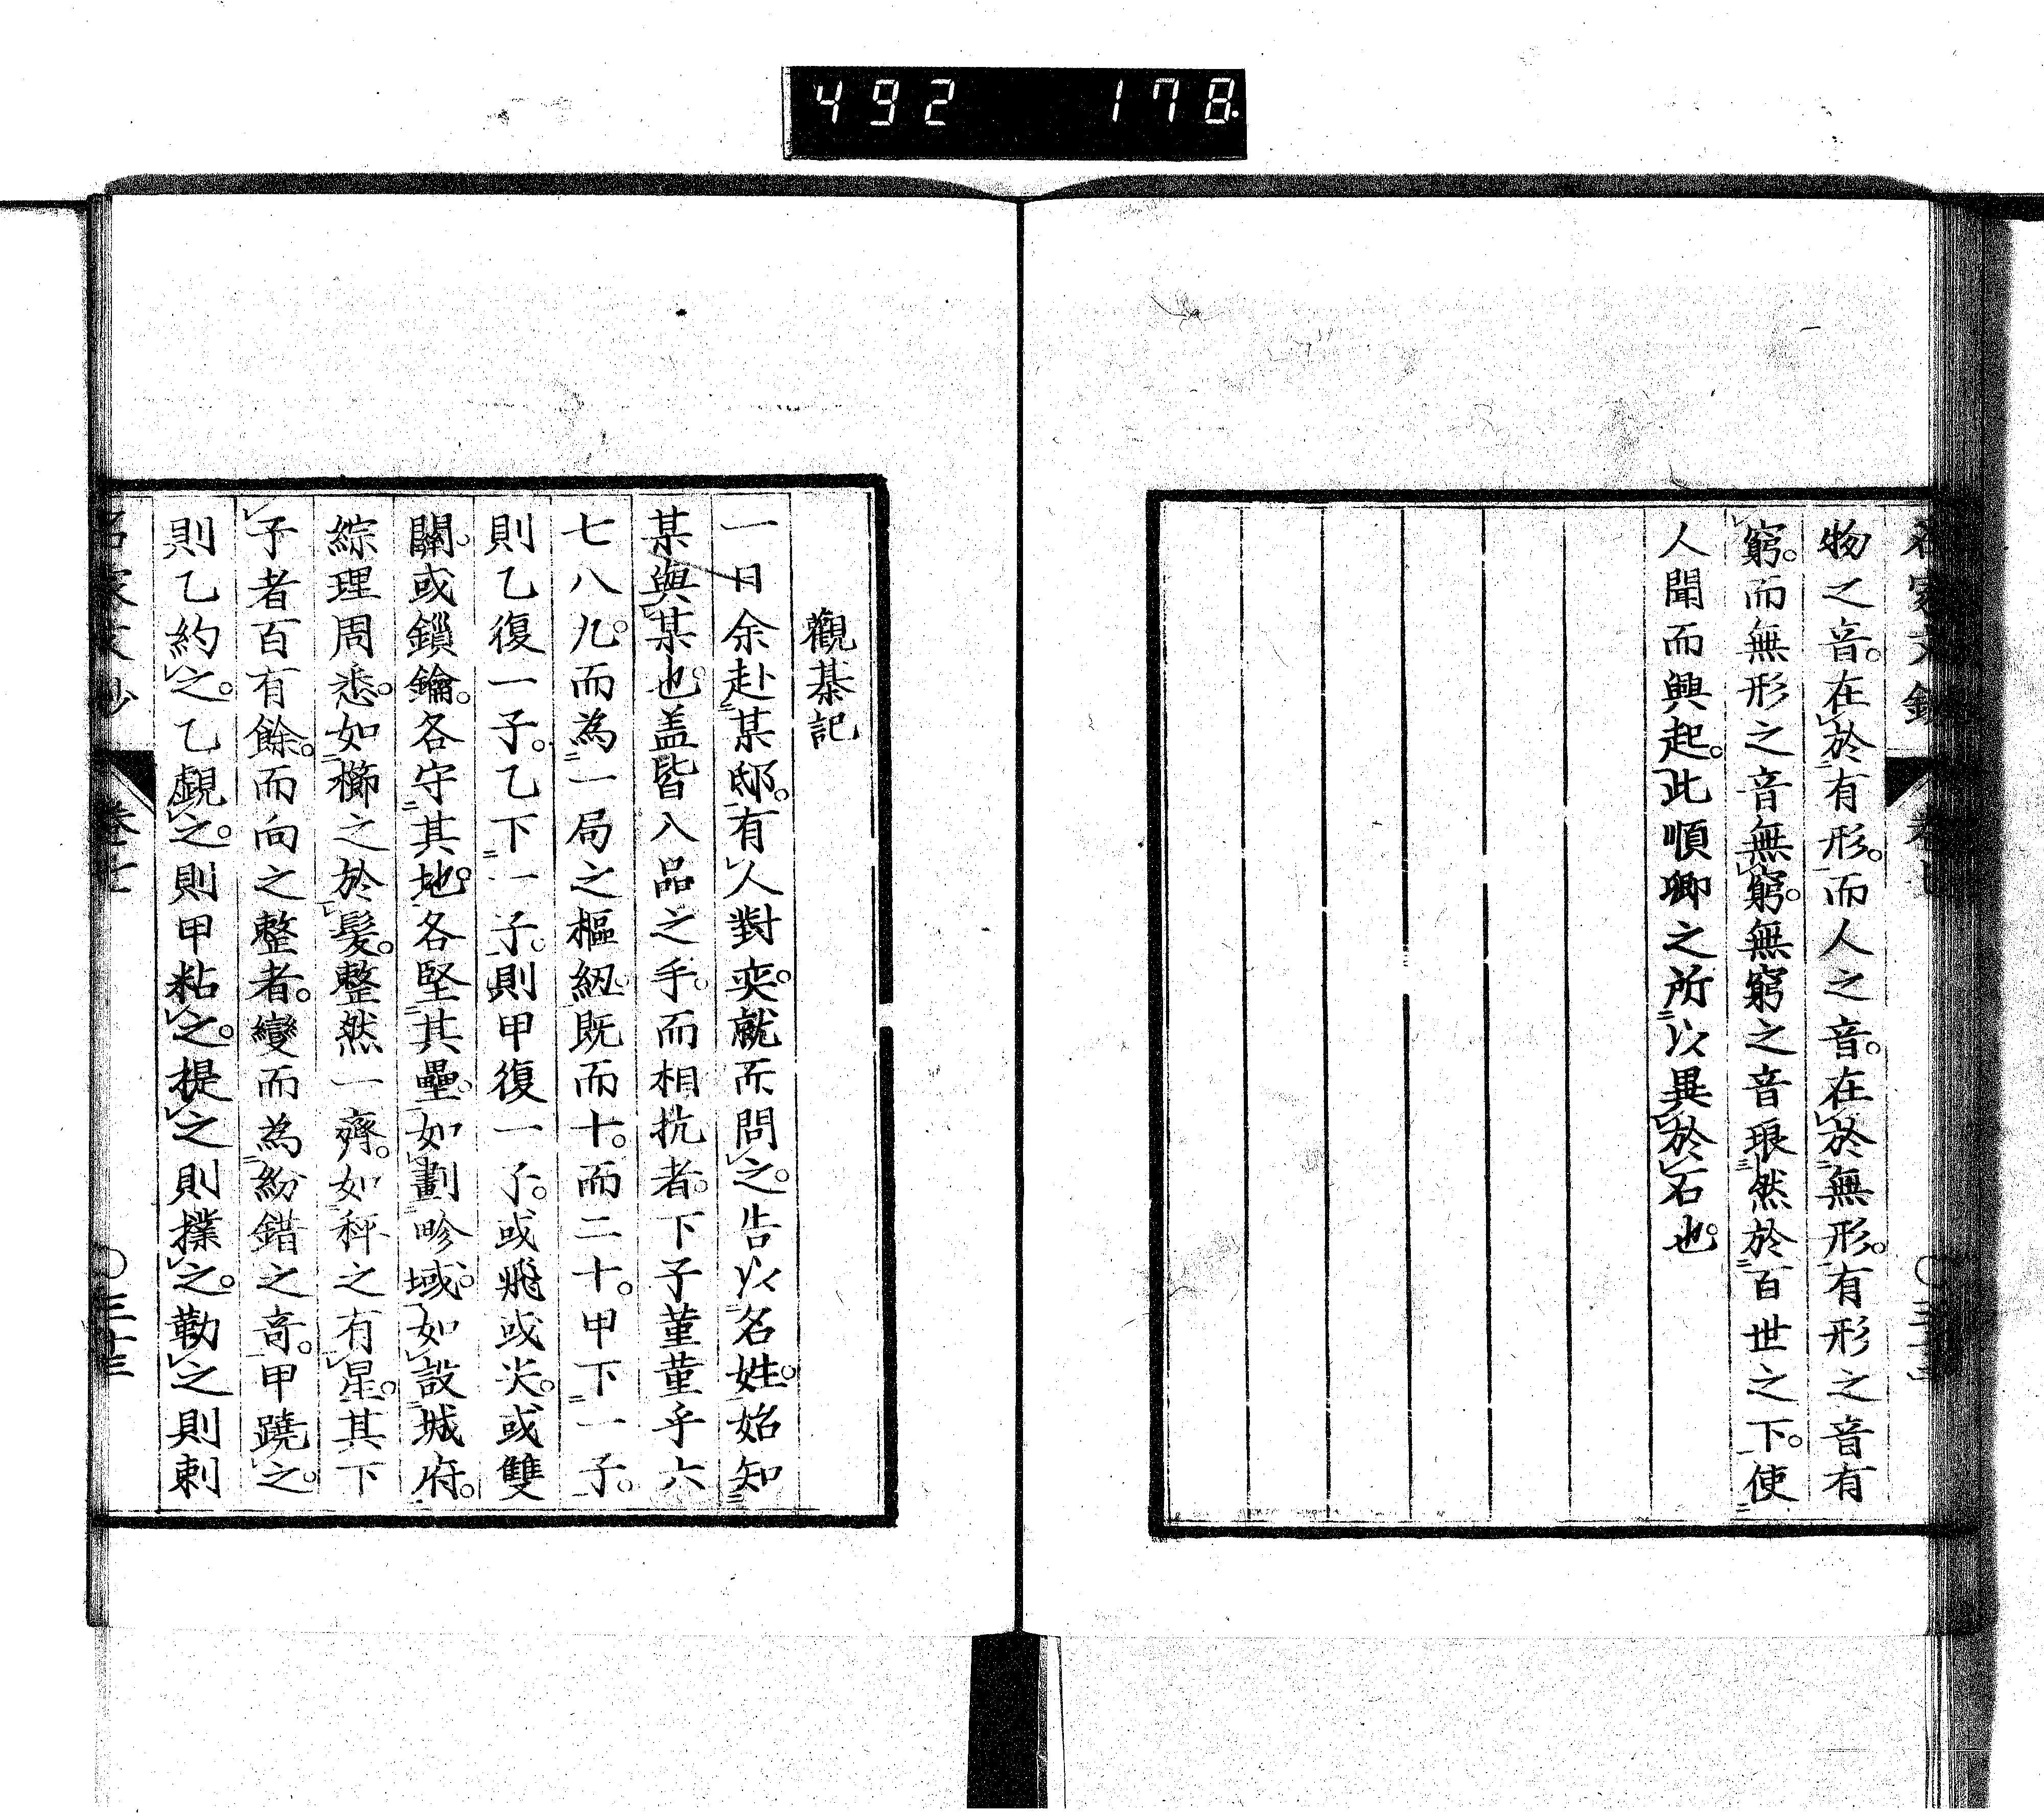 492 178
物之音。在於有形。而人之音。在於無形。有形之音有
窮。而無形之音無窮。無窮之音琅然於百世之下。使
人聞而興起。此順卿之所以異於石也。
觀棊記
一日余赴某邸。有人對奕。就而問之。告以名姓。始知
某與某也。盖皆入品之手。而相抗者。下子董董乎六
七八九。而為一局之樞紐。既而十。而二十。甲下一子。
則乙復一子。乙下一子。則甲復一子。或飛或尖。或雙
關。或鎖鑰。各守其地。各堅其壘。如劃畛域。如設城府。
綜理周悉。如櫛之於髮。整然一齊。如秤之有星。其下
子者百有餘。而向之整者。變而為紛錯之奇。甲蹺之。
則乙約之。乙覷之。則甲粘之。提之則撲之。勒之則刺
名家文抄 卷七 〇三十三